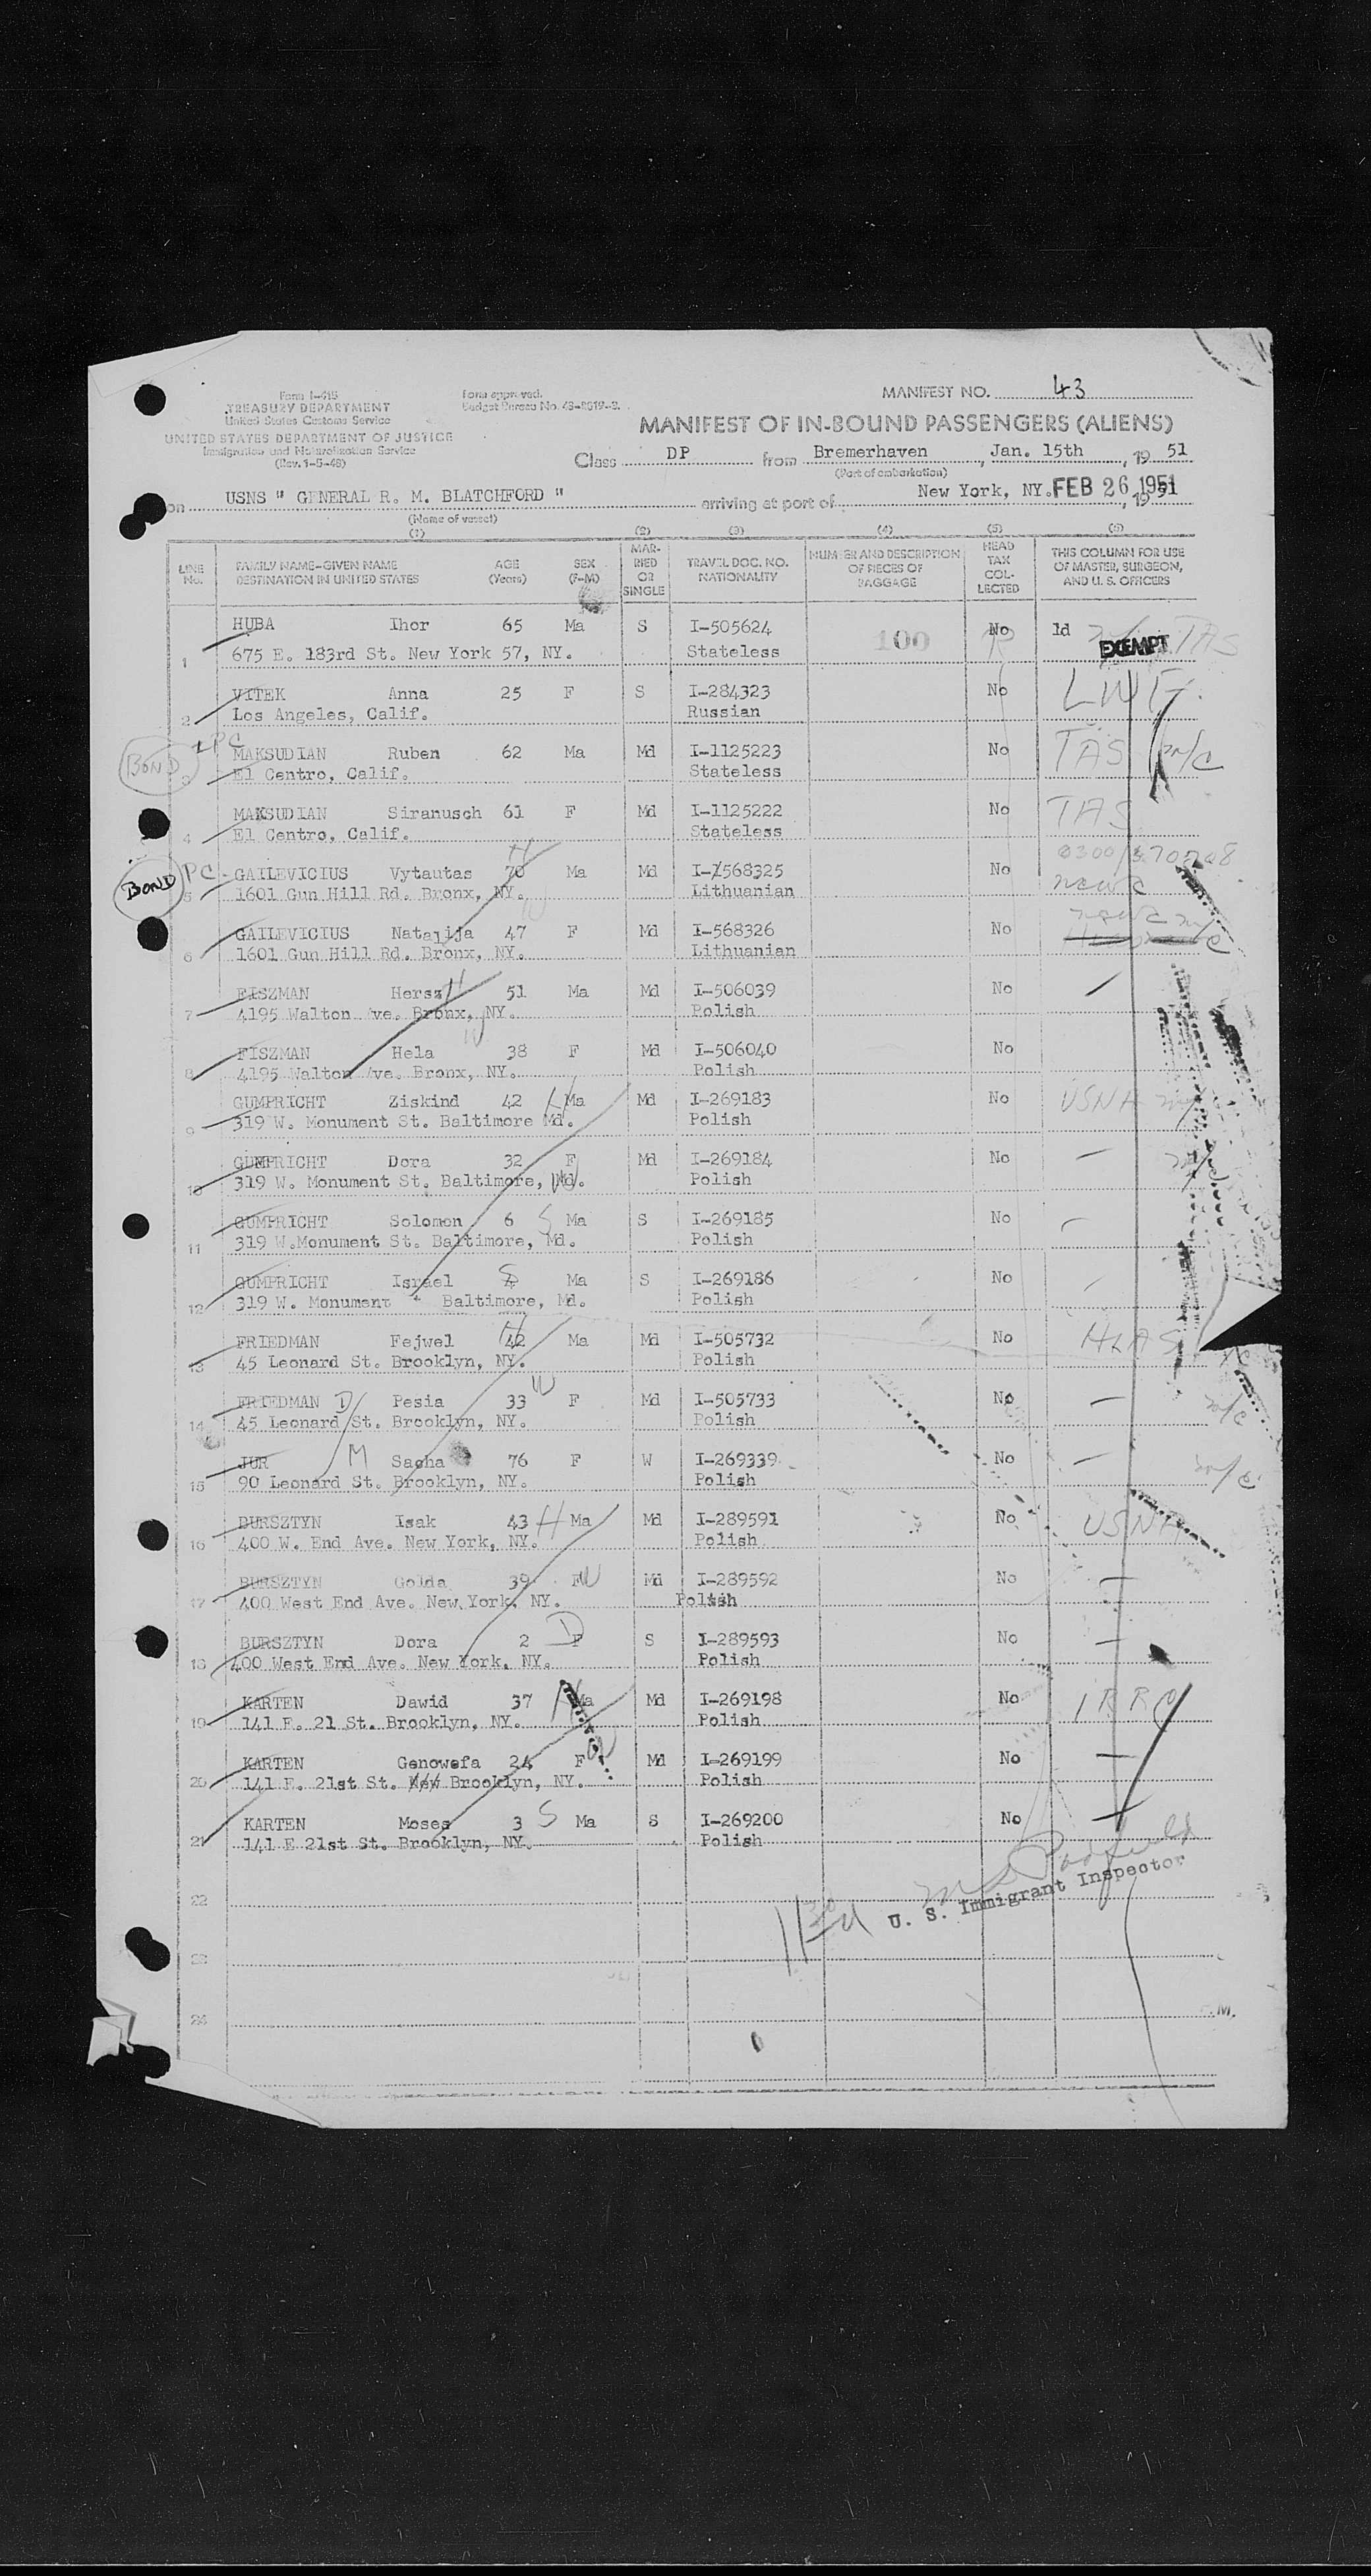 Form I-415
TREASURY DEPARTMENT
United States Customs Service
UNITED STATES DEPARTMENT OF JUSTICE
Immigration and Naturalization Service
(Rev. 1-5-48)
Form approved.
Budget Bureau No. 43-R019-2.
MANIFEST NO. 43
MANIFEST OF IN-BOUND PASSENGERS (ALIENS)
Class DP from Bremerhaven, Jan. 15th, 19 51
(Port of embarkation)
on USNS " GENERAL R. M. BLATCHFORD " arriving at port of New York, NY. FEB 26 1951, 19 51
(Name of vessel)
(1) (2) (3) (4) (5) (6)
LINE No. FAMILY NAME-GIVEN NAME DESTINATION IN UNITED STATES AGE (Years) SEX (F-M) MARRIED OR SINGLE TRAVEL DOC. NO. NATIONALITY NUMBER AND DESCRIPTION OF PIECES OF BAGGAGE HEAD TAX COLLECTED THIS COLUMN FOR USE OF MASTER, SURGEON, AND U. S. OFFICERS
1 HUBA Ihor 65 Ma S I-505624 100 No 1d EXEMPT TAS
675 E. 183rd St. New York 57, NY. Stateless
2 VITEK Anna 25 F S I-284323 No LWF
Los Angeles, Calif. Russian
BOND PC
3 MAKSUDIAN Ruben 62 Ma Md I-1125223 No TAS m/c
El Centro, Calif. Stateless
4 MAKSUDIAN Siranusch 61 F Md I-1125222 No TAS
El Centro, Calif. Stateless
BOND PC H
5 GAILEVICIUS Vytautas 70 Ma Md I-568325 No 0300/370708
1601 Gun Hill Rd. Bronx, NY. Lithuanian ncwc
W
6 GAILEVICIUS Natalija 47 F Md I-568326 No ncwc m/c
1601 Gun Hill Rd. Bronx, NY. Lithuanian
7 FISZMAN Hersz H 51 Ma Md I-506039 No
4195 Walton Ave. Bronx, NY. Polish
W
8 FISZMAN Hela 38 F Md I-506040 No
4195 Walton Ave. Bronx, NY. Polish
9 GUMPRICHT Ziskind 42 H Ma Md I-269183 No USNA m/c
319 W. Monument St. Baltimore Md. Polish
10 GUMPRICHT Dora 32 F Md I-269184 No — m/c
319 W. Monument St. Baltimore, Md. W Polish
11 GUMPRICHT Solomon 6 S Ma S I-269185 No —
319 W.Monument St. Baltimore, Md. Polish
12 GUMPRICHT Israel S Ma S I-269186 No
319 W. Monument " Baltimore, Md. Polish
13 FRIEDMAN Fejwel 42 H Ma Md I-505732 No HIAS
45 Leonard St. Brooklyn, NY. Polish
W
14 FRIEDMAN D Pesia 33 F Md I-505733 No — m/c
45 Leonard St. Brooklyn, NY. Polish
15 JUR M Sacha 76 F W I-269339 No — m/c
90 Leonard St. Brooklyn, NY. Polish
16 BURSZTYN Isak 43 H Ma Md I-289591 No USNA
400 W. End Ave. New York, NY. Polish
17 BURSZTYN Golda 39 F W Md I-289592 No —
400 West End Ave. New York, NY. Polish
18 BURSZTYN Dora 2 D F S I-289593 No —
400 West End Ave. New York, NY. Polish
19 KARTEN Dawid 37 H Ma Md I-269198 No IRRC
141 E. 21 St. Brooklyn, NY. Polish
20 KARTEN Genowefa 24 F W Md I-269199 No —
141 E. 21st St. Brooklyn, NY. Polish
21 KARTEN Moses 3 S Ma S I-269200 No —
141 E 21st St. Brooklyn, NY. Polish
22
U. S. Immigrant Inspector
23
24